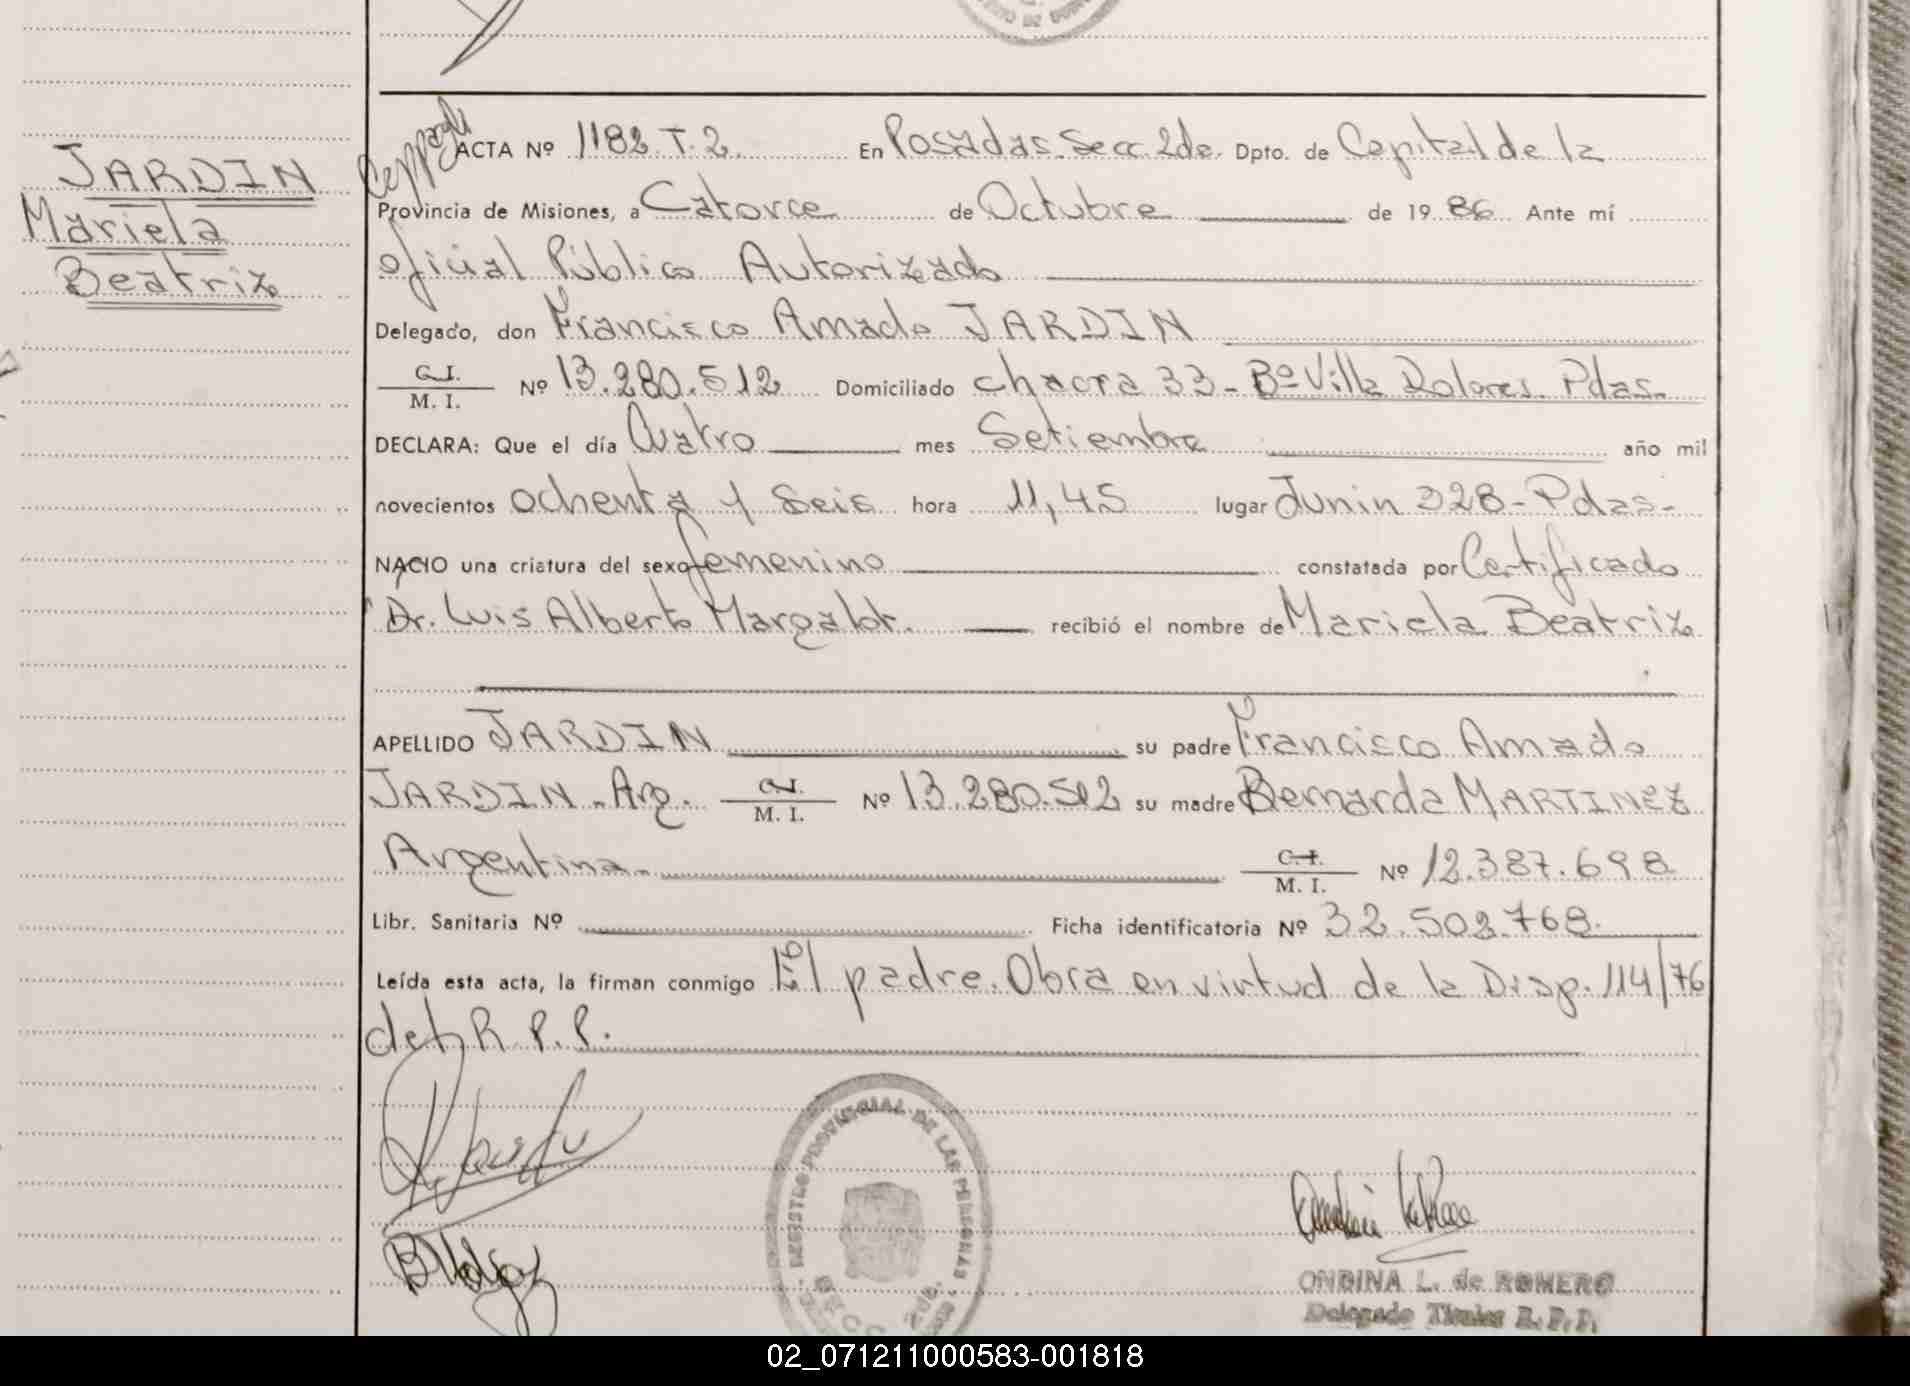 JARDIN
Mariela
Beatriz
ACTA Nº 1182. T. 2. En Posadas. Secc. 2da. Dpto. de Capital de la
Provincia de Misiones, a Catorce de Octubre de 1986 Ante mí
oficial Público Autorizado
Delegado, don Francisco Amado JARDIN
C.I. / M. I. Nº 13.280.512 Domiciliado chacra 33 - Bº Villa Dolores. Pdas.
DECLARA: Que el día Cuatro mes Setiembre año mil
novecientos ochenta y Seis hora 11,45 lugar Junin 328 - Pdas-
NACIO una criatura del sexo femenino constatada por Certificado
Dr. Luis Alberto recibió el nombre de Mariela Beatriz
APELLIDO JARDIN su padre Francisco Amado
JARDIN. Arg. C.I. / M. I. Nº 13.280.512 su madre Bernarda MARTINEZ
Argentina. C.I. / M. I. Nº 12.387.698
Libr. Sanitaria Nº Ficha identificatoria Nº 32.502.768.
Leída esta acta, la firman conmigo El padre. Obra en virtud de la Disp. 114/76
del R. P. P.
REGISTRO PROVINCIAL DE LAS PERSONAS
SECC. 2da.
ONDINA L. de ROMERO
Delegado Titular R.P.P.
02_071211000583-001818